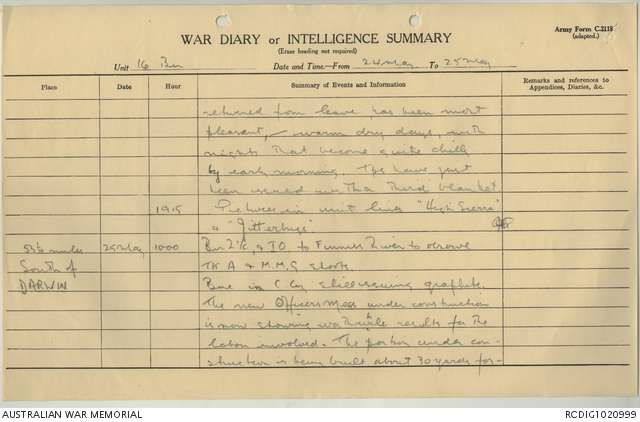 Army Form C.2118
(adapted.)
WAR DIARY or INTELLIGENCE SUMMARY
(Erase heading not required)
Unit 16 Bn Date and Time—From 24 May To 25 May
Place Date Hour Summary of Events and Information Remarks and references to Appendices, Diaries, &c.
returned from leave has been most
pleasant, – warm dry days, with
nights that become quite chilly
by early morning. Tps have just
been issued with a third blanket
1915 Pictures in unit lines "High Sierra"
& "Jitterbugs".
55 miles 25 May 1000 Bn 2 i/c, & IO to Finniss River to observe
South of TK A & M.M.G shoots.
DARWIN in C Coy still issuing graphite.
The new Officers Mess under construction
is now showing worthwhile results for the
labour involved. The portion under con-
struction is being built about 30 yards for-
AUSTRALIAN WAR MEMORIAL
RCDIG1020999